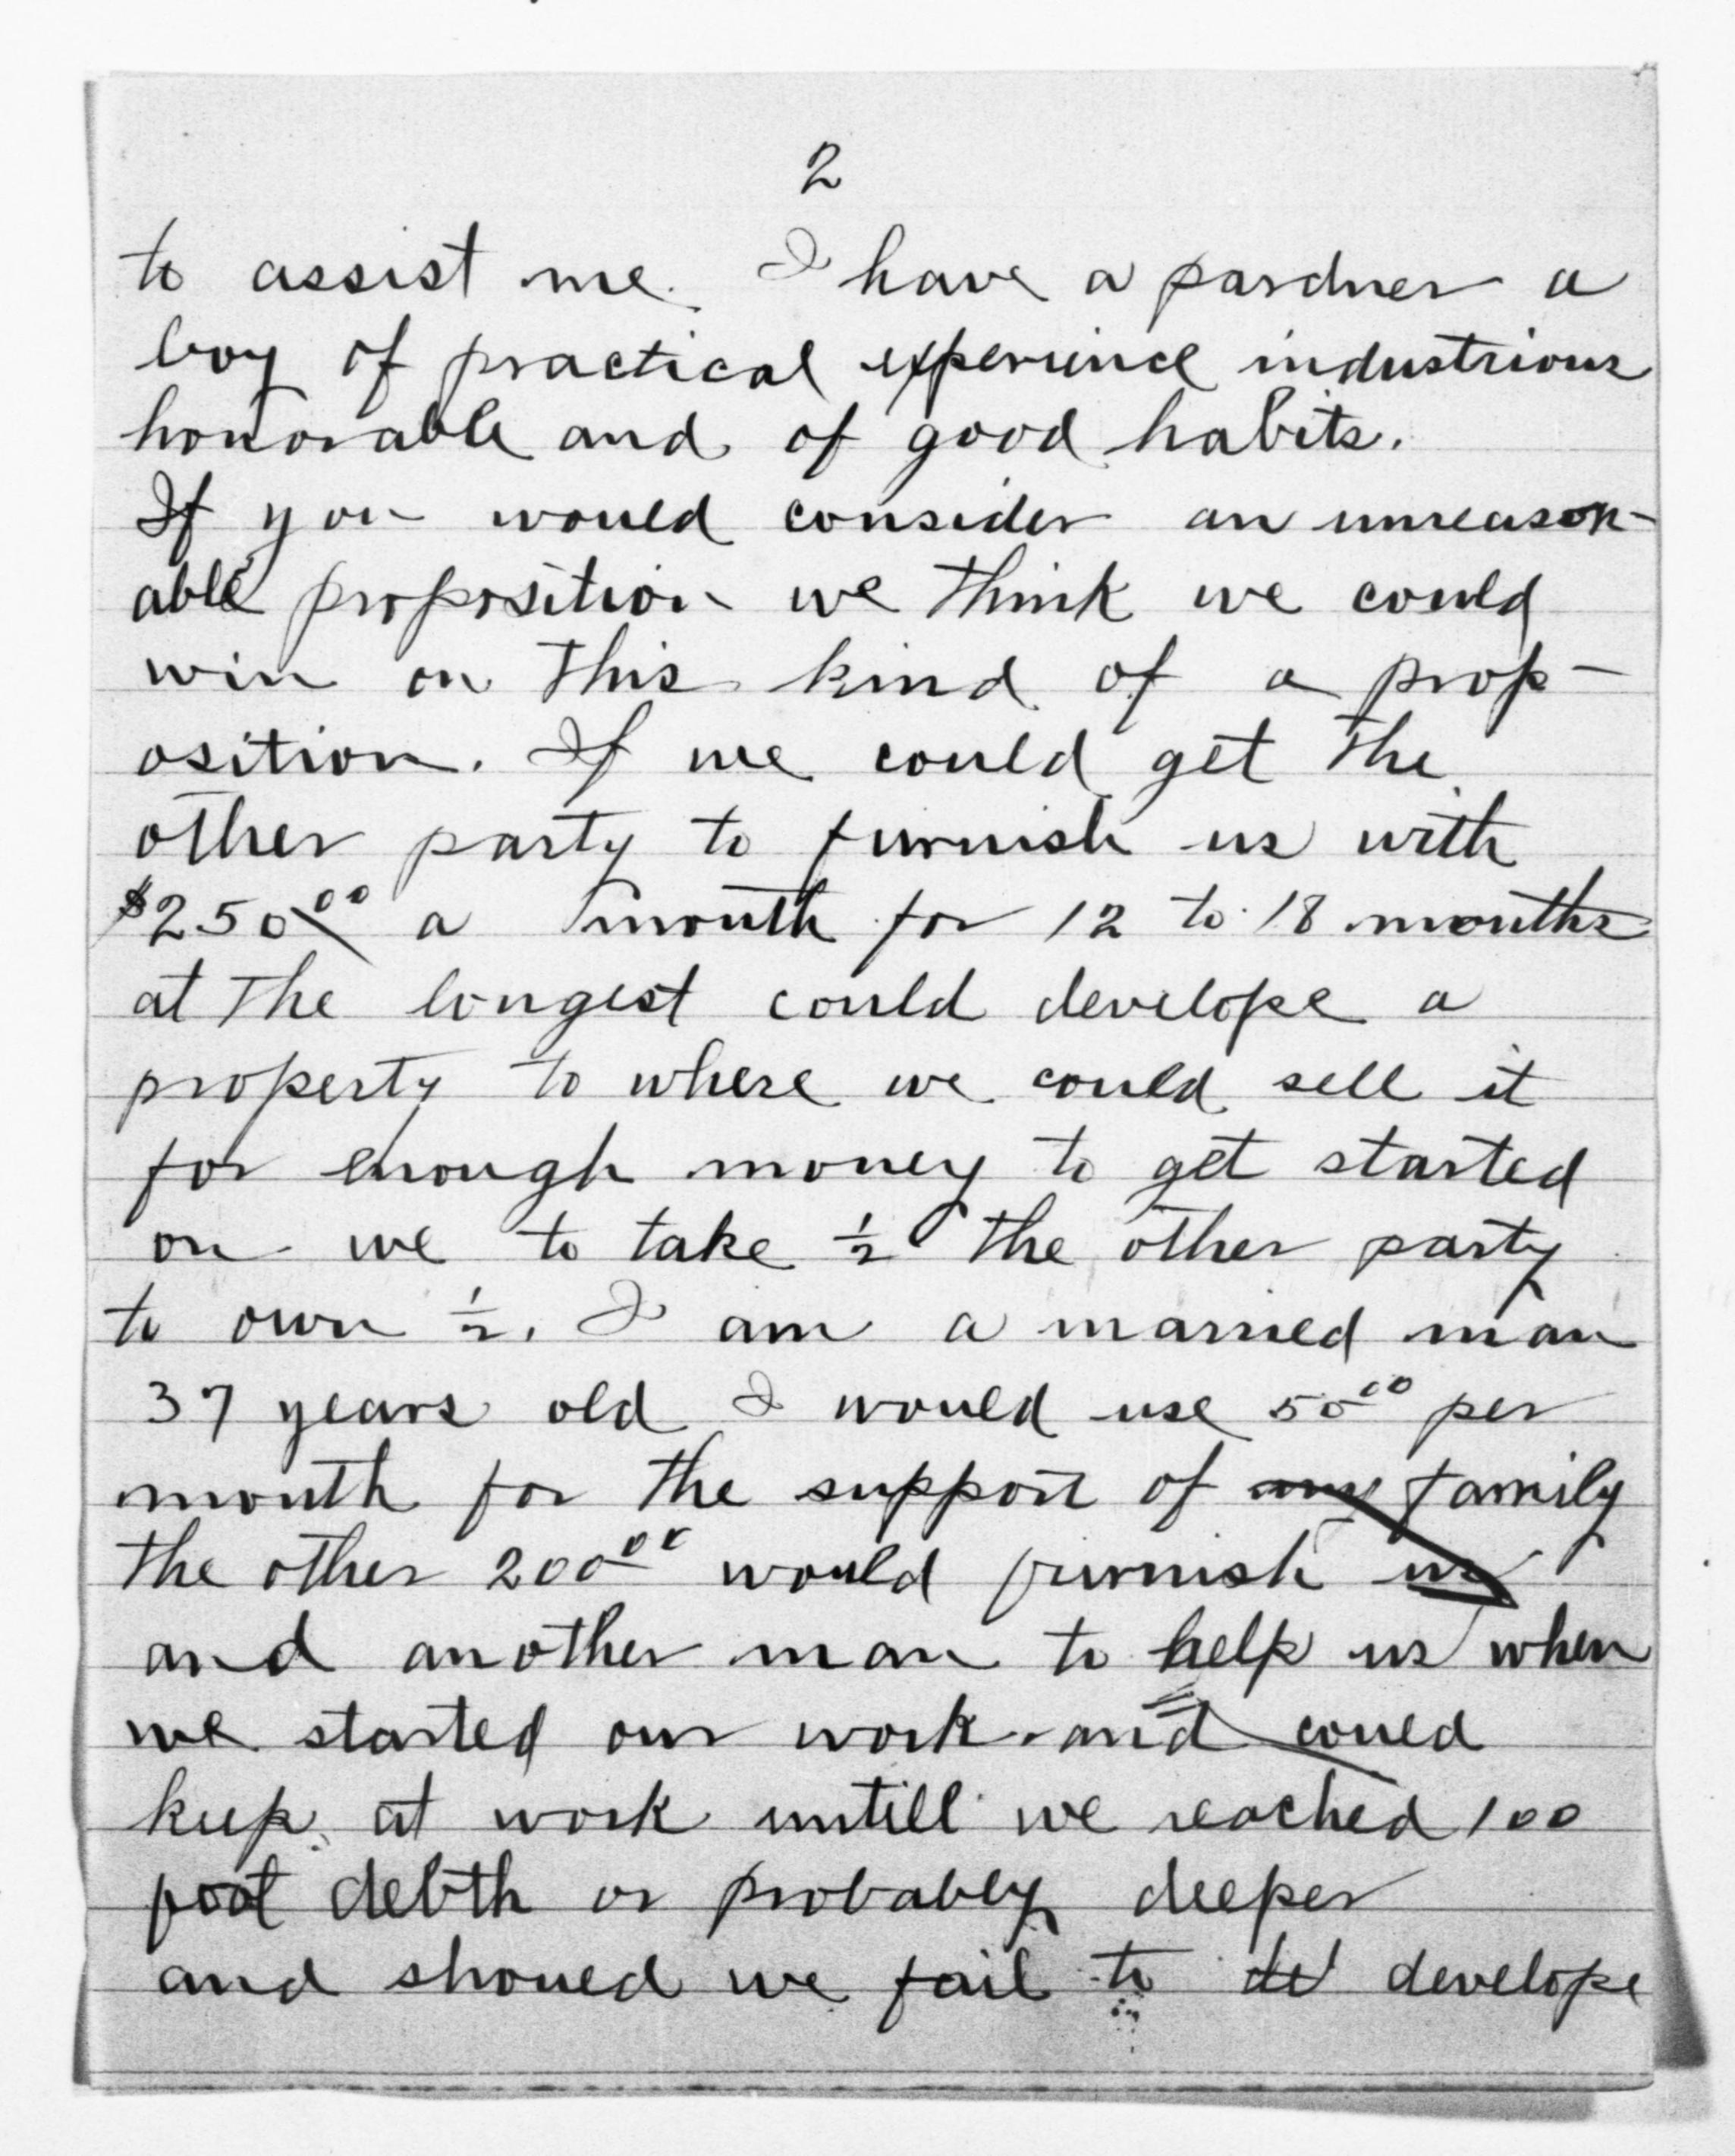 2
to assist me. I have a pardner a
boy of practical experience industrious
honorable and of good habits.
If you would consider an unreason-
able proposition we think we could
win on this kind of a prop-
osition. If we could get the
other party to furnish us with
$250.00 a month for 12 to 18 months
at the longest could develope a
property to where we could sell it
for enough money to get started
on we to take ½ the other party
to own ½. I am a married man
37 years old I would use 50.00 per
month for the support of my family
the other 200.00 would furnish us
and another man to help us when
we started our work and could
keep at work untill we reached 100
foot debth or probably deeper
and should we fail to de develope